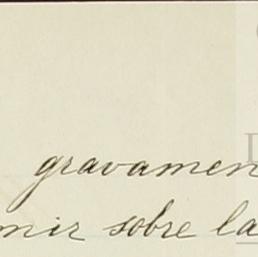 gravamen
mir sobre la